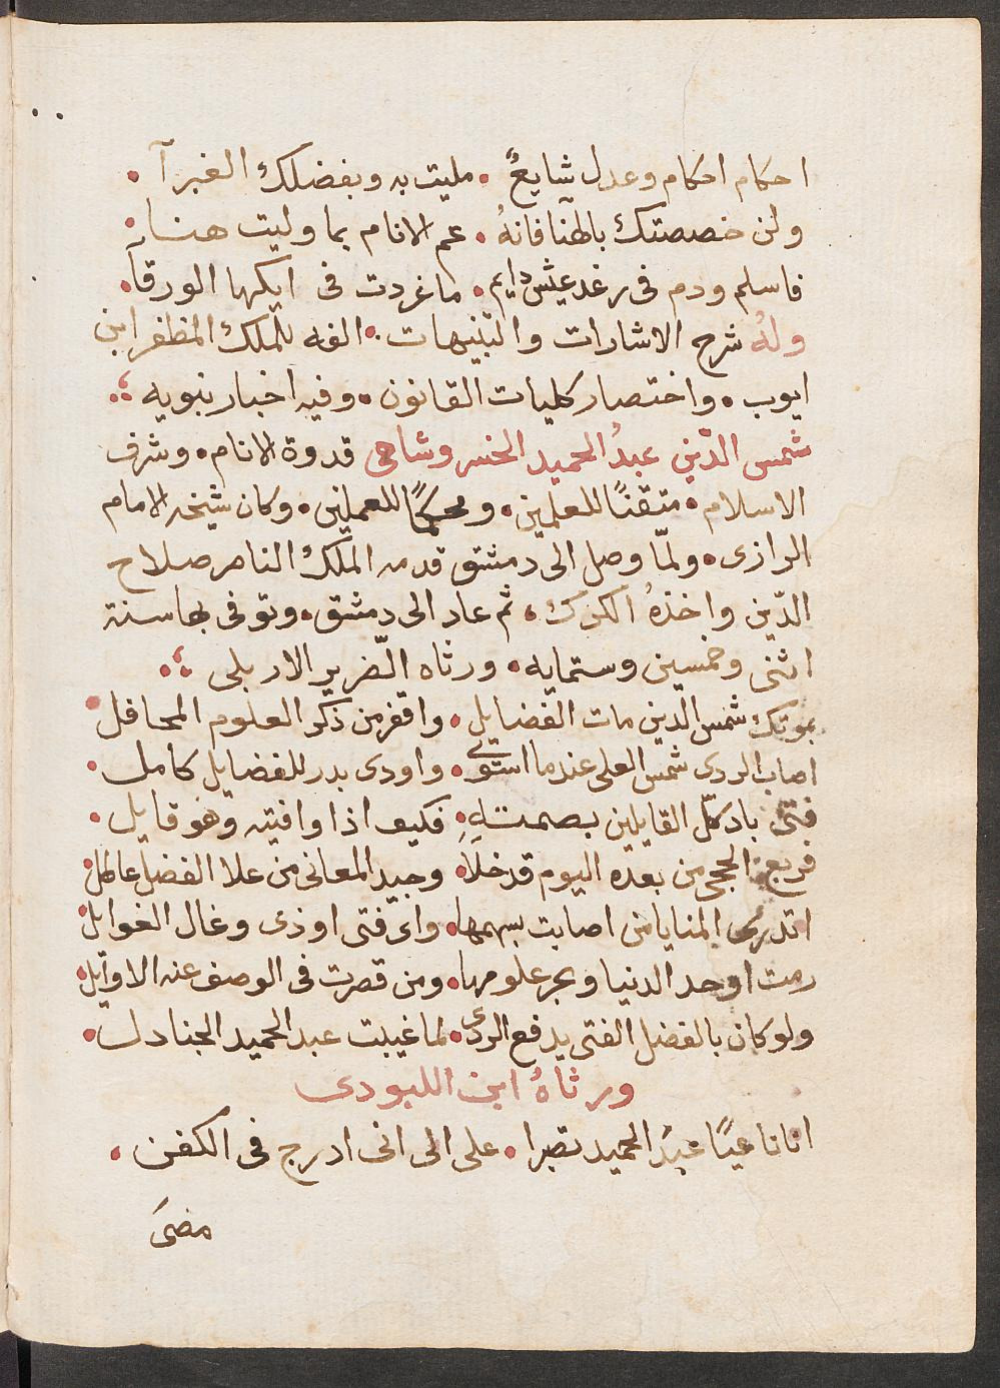 احكام احكام وعدل شايعٌ • مليت به وبفضلك الغبرآ •
ولئن خصصتك بالهنا فانهُ • عم الانام بما وليت هنا •
فاسلم ودم فى رغد عيش دايم • ما غردت فى ايكها الورقآ •
ولهُ شرح الاشارات والتنبيهات • الفه للملك المظفر ابن
ايوب • واختصار كليات القانون • وفيه اخبار نبويه
شمس الدّين عبدُ الحميد الخسروشاهى قدوة الانام • وشرف
الاسلام • متقنًا للعلمين • ومحكمًا للعملين • وكان شيخه الامام
الرازى • ولمّا وصل الى دمشق قدمه الملك الناصر صلاح
الدّين واخذهُ الكرك • ثم عاد الى دمشق • وتوفى بها سنة
اثنى وخمسين وستمايه • ورثاه الضّرير الاربلى
بموتك شمس الدين مات الفضايل • واقفر من ذكر العلوم المحافل •
اصاب الردى شمس العلى عندما استوى • واودى بدر للفضايل كامل •
فتى باد كلّ القايلين بصمتهِ • فكيف اذا وافيته وهو قايل •
فربع الحجى من بعده اليوم قد خلا • وجيد المعانى من علا الفضل عاطل •
اتدرى المنايا من اصابت بسهمها • واى فتى اوذى وغال الغوايل •
رمت اوحد الدنيا وبحر علومها • ومن قصرت فى الوصف عنه الاوآيل •
ولو كان بالفضل الفتى يدفع الردى • لما غيبت عبد الحميد الجنادل •
ورثاهُ ابن اللبودى
انانا عيًا عبدُ الحميد تصبرا • على الى انى ادرج فى الكفن •
مضى